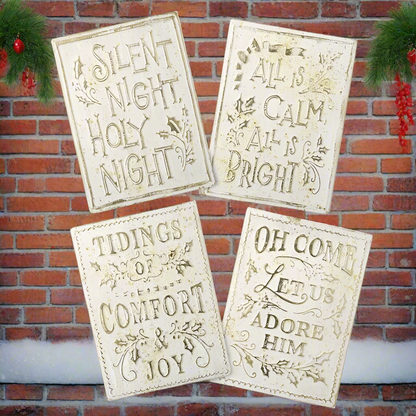 SILENT
NIGHT,
HOLY
NIGHT
ALL IS
CALM
ALL IS
BRIGHT
TIDINGS
OF
COMFORT
&
JOY
OH COME
LET US
ADORE
HIM